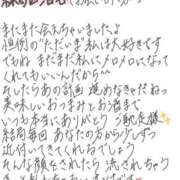 またまた会えちゃいましたよ
恒例の"ただいま"私は大好きです
でもね まだまだ私にメロメロになって
くれてもいいんだから
そしたらあの計画 進めなきゃだねっ
美味しいおつまみとお酒まで
いつも本当にありがとう
結局毎回 あなたの方から少しずつ
近付いてきてくれるでしょう
そんな顔をされたら 流されちゃう